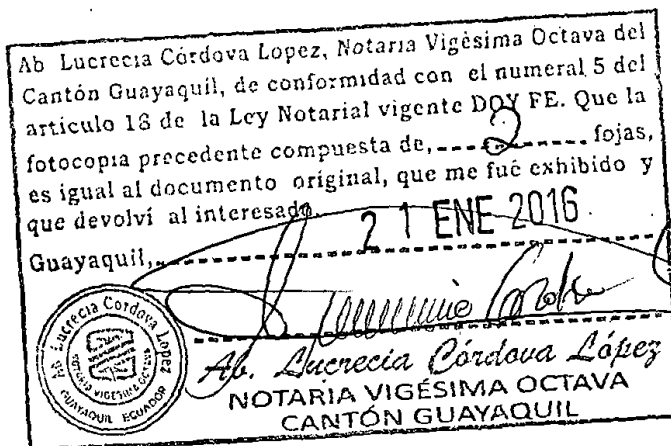 Ab Lucrecia Córdova Lopez, Notaria Vigèsima Octava del
Cantón Guayaquil, de conformidad con el numeral 5 del
artículo 18 de la Ley Notarial vigente DOY FE. Que la
fotocopia precedente compuesta de, 2 fojas,
es igual al documento original, que me fué exhibido y
que devolví al interesado.
21 ENE 2016
Guayaquil,
Ab. Lucrecia Córdova López
NOTARIA VIGÉSIMA OCTAVA
CANTÓN GUAYAQUIL
Ab Lucrecia Cordova Lopez
NOTARIA VIGESIMA OCTAVA
GUAYAQUIL ECUADOR